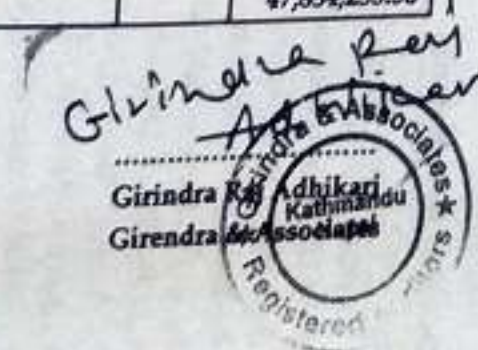 Girindra Raj
Adhikari
Girindra Raj Adhikari
Girendra & Associates
Girindra & Associates ★
Kathmandu
Nepal
Registered